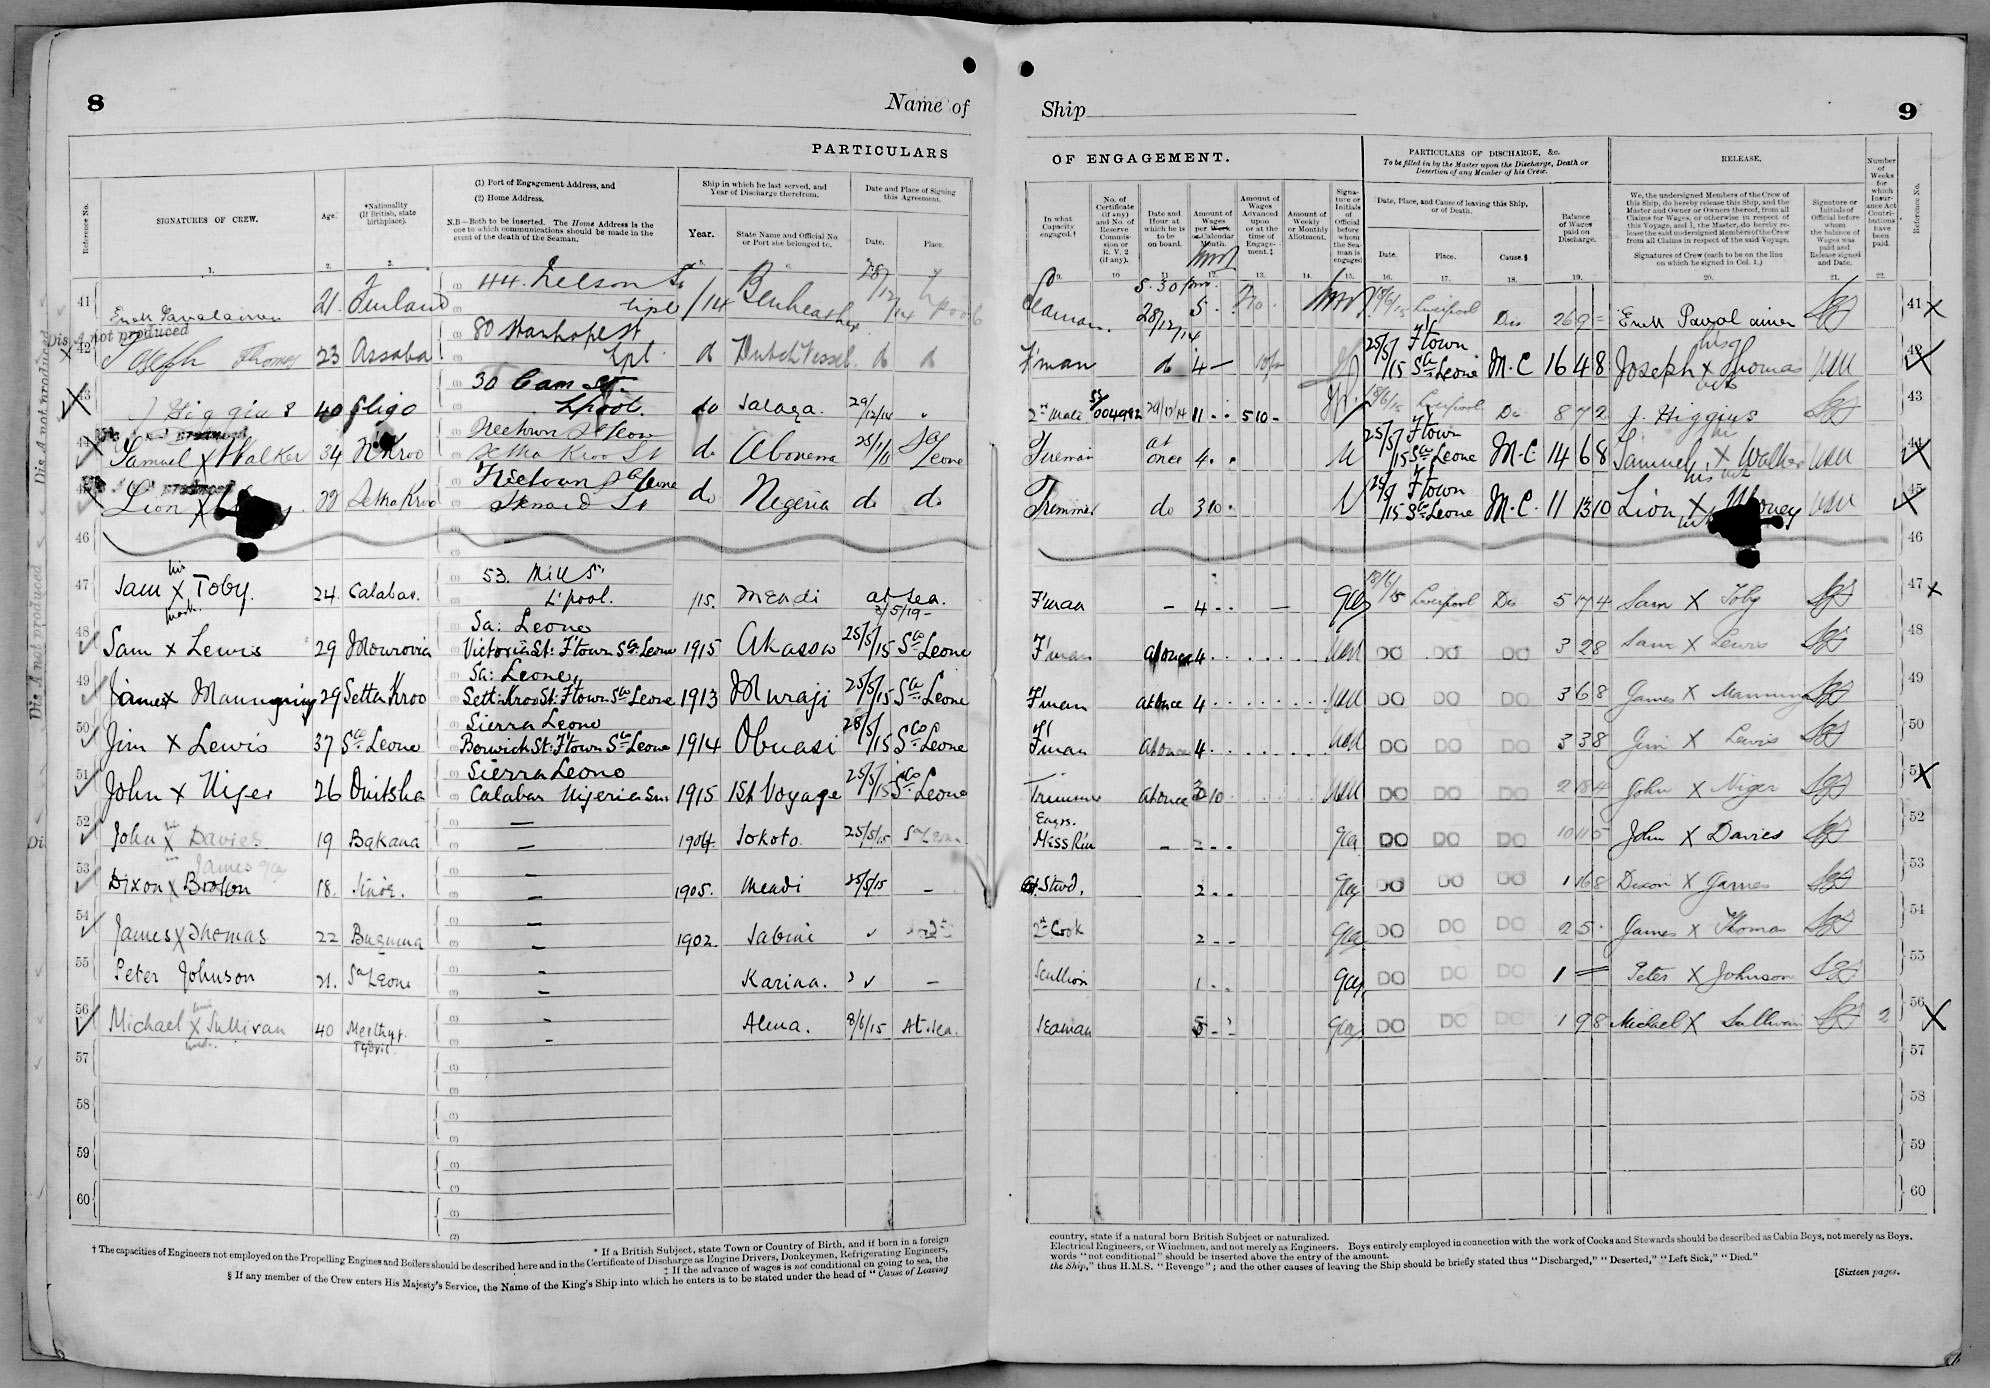 8
Name of
Ship
9
PARTICULARS
OF ENGAGEMENT.
PARTICULARS OF DISCHARGE, &c.
To be filled in by the Master upon the Discharge, Death or
Desertion of any Member of his Crew.
RELEASE.
Number of Weeks for which Insurance Act Contributions have been paid.
Reference No.
SIGNATURES OF CREW.
Age.
*Nationality
(If British, state
birthplace).
(1) Port of Engagement Address, and
(2) Home Address.
N.B.—Both to be inserted. The Home Address is the
one to which communications should be made in the
event of the death of the Seaman.
Ship in which he last served, and
Year of Discharge therefrom.
Year.
State Name and Official No
or Port she belonged to.
Date and Place of Signing
this Agreement.
Date.
Place.
In what
Capacity
engaged.†
No. of
Certificate
(if any)
and No. of
Reserve
Commission or
R. V. 2
(if any).
Date and
Hour at
which he is
to be
on board.
Amount of
Wages
per Week
or Calendar
Month.
Amount of
Wages
Advanced
upon
or at the
time of
Engagement.‡
Amount of
Weekly
or Monthly
Allotment.
Signature or
Initials
of
Official
before
whom
the Seaman is
engaged
Date, Place, and Cause of leaving this Ship,
or of Death.
Date.
Place.
Cause.§
Balance
of Wages
paid on
Discharge.
We, the undersigned Members of the Crew of
this Ship, do hereby release this Ship, and the
Master and Owner or Owners thereof, from all
Claims for Wages, or otherwise in respect of
this Voyage, and I, the Master, do hereby release the said undersigned Members of the Crew
from all Claims in respect of the said Voyage.
Signatures of Crew (each to be on the line
on which he signed in Col. 1.)
Signature or
Initials of
Official before
whom
the balance of
Wages was
paid and
Release signed
and Date.
Reference No.
41 21 Finland 44. Nelson St Lpool /14 Benheather 28/12/14 Lpool
Seaman 5.30 pm 28/12/14 5 18/6/15 Liverpool Dis 26 9 =
Dis A not produced
42 Joseph Thomas 23 Assaba 80 Stanhope St Lpl do Dutch Vessel do do
F'man do 4 — 25/5/15 F'town Sa Leone M.C 16 4 8 Joseph x Thomas
43 J Higgins 40 Sligo 30 Cam St. Lpool. do Salaga. 29/12/14 "
2nd Mate 004982 29/12/14 11 . . 5 10 - 18/6/15 Liverpool Do 8 7 2 J. Higgins
44 Samuel x Walker 34 N Kroo Freetown S Leone Settha Kroo St do Abonema 25/1/15 Sa/Leone
Fireman at once 4 . . 25/5/15 F'town Sa Leone M.C 14 6 8 Samuel x Walker
45 Lion x 22 Settra Kroo Freetown Sa Leone do Nigeria do do
Trimmer do 3 10 . F'town Sa Leone M.C. 11 13 10 Lion x
46
47 Sam his x mark Toby. 24. Calabar. 53. Mill St. L'pool. /15. Mendi at sea.
F'man — 4 - - 18/6/15 Liverpool Dis 5 17 4 Sam X Toby
48 Sam x Lewis 29 Monrovia Sa: Leone Victoria St: F'town Sa Leone 1915 Akassa 25/5/15 Sa Leone
F'man at once 4 DO DO DO 3 2 8 Sam x Lewis
49 James x Manning 29 Setta Kroo Sa: Leone Sett: Kroo St: F'town Sa Leone 1913 Muraji 25/5/15 Sa Leone
F'man at once 4 DO DO DO 3 6 8 James X Manning
50 Jim x Lewis 37 Sa Leone Sierra Leone Berwick St: F'town Sa Leone 1914 Obuasi 28/5/15 Sa Leone
F'man at once 4 DO DO DO 3 3 8 Jim X Lewis
51 John x Niger 26 Onitsha Sierra Leone Calabar Nigeria 1915 1st Voyage 25/5/15 Sa Leone
Trimmer at once 3 10 DO DO DO 2 18 4 John X Niger
52 John x Davies 19 Bakana — — 1904 Sokoto. 25/5/15 Sa Leone
Engrs. Mess Rm — 2 - - DO DO DO 10 11 5 John X Davies
53 Dixon x Brown James 18. Sinoe. — — 1905. Mendi 25/5/15 —
Stwd. 2 - - DO DO DO 1 16 8 Dixon X James
54 James x Thomas 22 Buguma — — 1902. Sabini
2nd Cook 2 - - DO DO DO 2 5 . James X Thomas
55 Peter Johnson 21. Sa Leone — — Karina. —
Scullion 1 . . DO DO DO 1 = Peter X Johnson
56 Michael his x mark Sullivan 40 Merthyr Tydvil. — Alma. 8/6/15 At Sea.
Seaman 5 - - DO DO DO 1 9 8 Michael X Sullivan 2
57
58
59
60
Dis A not produced
Dis A not produced
† The capacities of Engineers not employed on the Propelling Engines and Boilers should be described here and in the Certificate of Discharge as Engine Drivers, Donkeymen, Refrigerating Engineers,
Electrical Engineers, or Winchmen, and not merely as Engineers. Boys entirely employed in connection with the work of Cooks and Stewards should be described as Cabin Boys, not merely as Boys.
* If a British Subject, state Town or Country of Birth, and if born in a foreign
country, state if a natural born British Subject or naturalized.
‡ If the advance of wages is not conditional on going to sea, the
words "not conditional" should be inserted above the entry of the amount.
§ If any member of the Crew enters His Majesty's Service, the Name of the King's Ship into which he enters is to be stated under the head of "Cause of Leaving
the Ship," thus H.M.S. "Revenge"; and the other causes of leaving the Ship should be briefly stated thus "Discharged," "Deserted," "Left Sick," "Died."
[Sixteen pages.